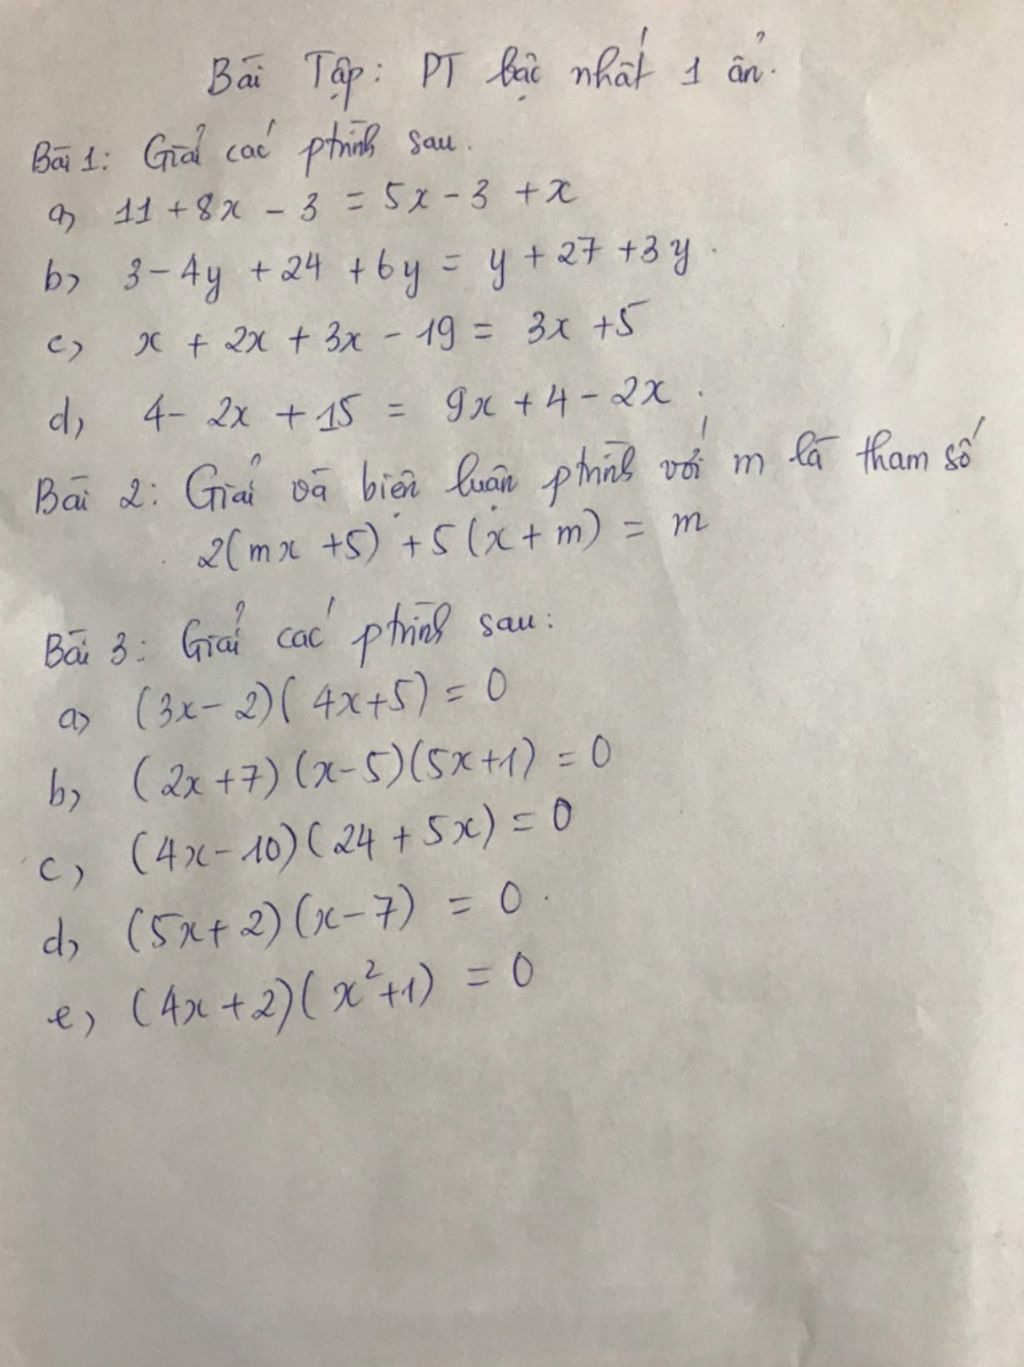 Bài Tập: PT bậc nhất 1 ẩn.
Bài 1: Giải các ptrình sau.
a) 11 + 8x - 3 = 5x - 3 + x
b) 3 - 4y + 24 + 6y = y + 27 + 3y.
c) x + 2x + 3x - 19 = 3x + 5
d) 4 - 2x + 15 = 9x + 4 - 2x.
Bài 2: Giải và biện luận ptrình với m là tham số
2(mx + 5) + 5(x + m) = m
Bài 3: Giải các ptrình sau:
a) (3x - 2)(4x + 5) = 0
b) (2x + 7)(x - 5)(5x + 1) = 0
c) (4x - 10)(24 + 5x) = 0
d) (5x + 2)(x - 7) = 0.
e) (4x + 2)(x² + 1) = 0